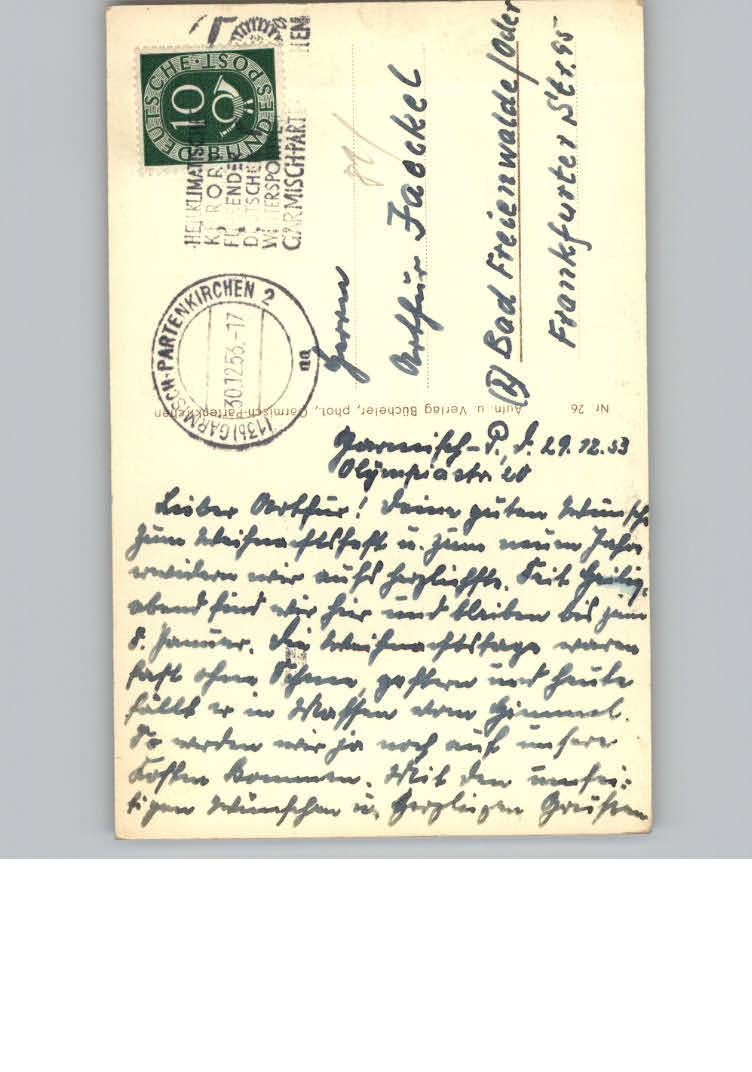 DEUTSCHE·POST
10
BUND
HEILKLIMATISCHER
KURORT
DEUTSCHE
WINTERSPO
GARMISCH-PART
(13b) GARMISCH-PARTENKIRCHEN 2
30.12.53.-17
aa
Herrn
Arthur Jaeckel
Bad Freienwalde/Oder
Frankfurter Str. 95
Nr. 26 Aufn. u. Verlag Bücheler, phot., Garmisch-Partenkirchen
Garmisch-P., d. 29.12.53
Olympiastr. 20
Lieber Arthur! Deine guten Wünsche
zum Weihnachtsfest u. zum neuen Jahre
erwidern wir aufs herzlichste. Seit Heilig-
abend sind wir hier und bleiben bis zum
8. Januar. Die Weihnachtstage waren
fast ohne Schnee, gestern und heute
fällt er in Massen vom Himmel.
So werden wir ja noch auf unsere
Kosten kommen. Mit den
Wünschen u. herzlichen Grüssen